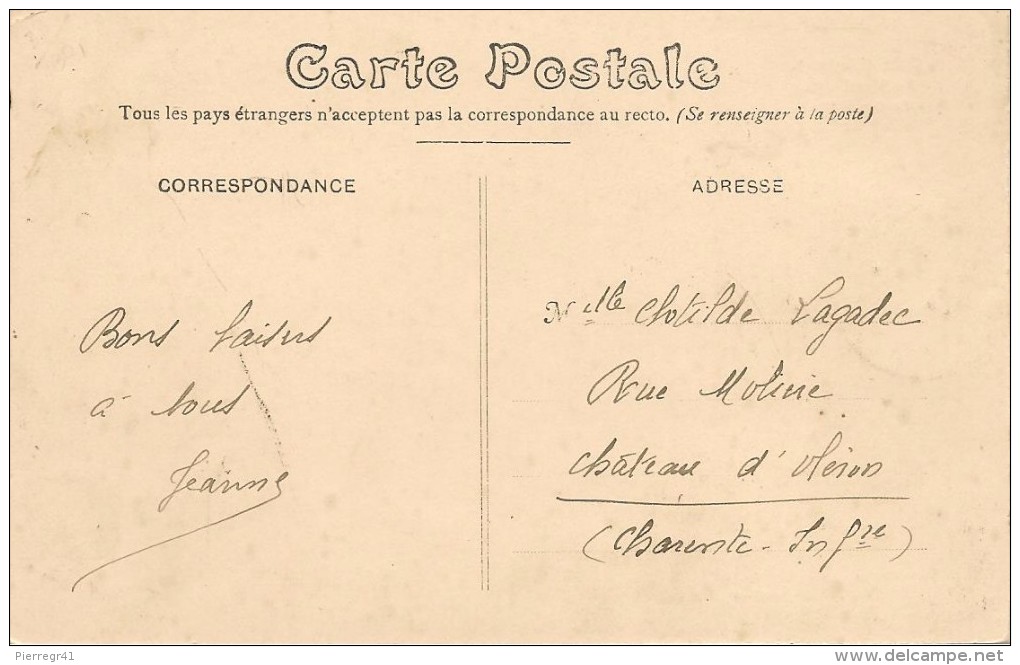 Carte Postale
Tous les pays étrangers n'acceptent pas la correspondance au recto. (Se renseigner à la poste)
CORRESPONDANCE
Bons baisers
à tous
Jeanne
ADRESSE
Melle Clotilde Lagadec
Rue Molinie
Château d'Oléron
(Charente-Infre)
Pierregr41
www.delcampe.net